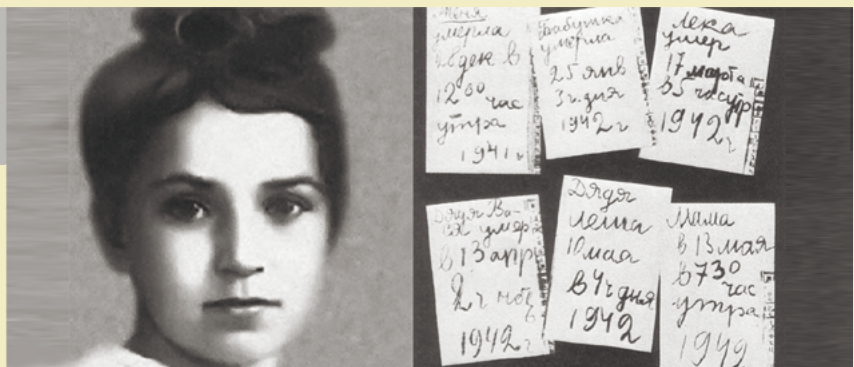 Женя
умерла
28 дек в
12 00 час
утра
1941 г
Бабушка
умерла
25 янв
3 ч. дня
1942 г
Лека
умер
17 марта
в 5 час утр
1942 г
Дядя Ва-
ся умер
в 13 апр
2 ч ноч
1942 г
Дядя
Леша
10 мая
в 4 ч дня
1942
Мама
в 13 мая
в 7 30
час
утра
1942